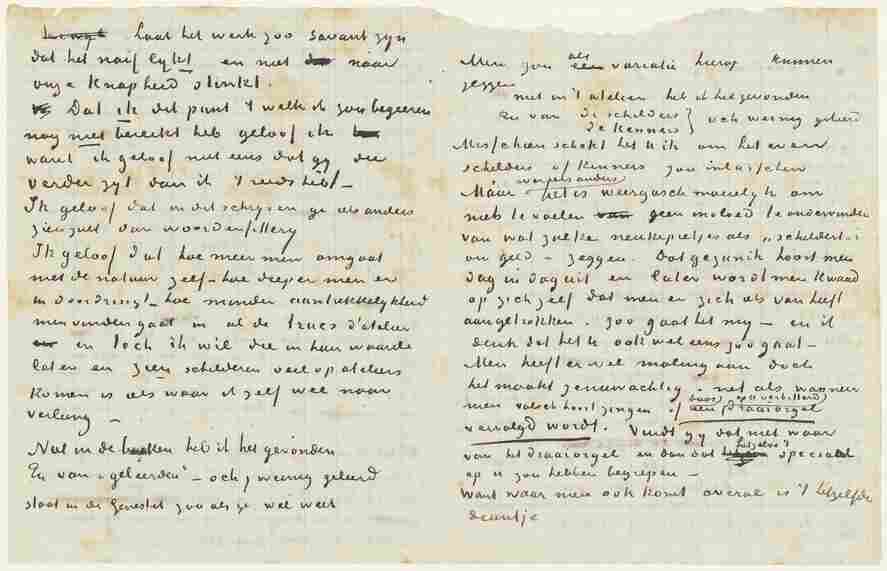 Laat het werk zoo savant zyn
dat het naif lykt en niet naar
onze knapheid stinkt.
Dat ik dit punt 't welk ik zou begeeren
nog niet bereikt heb geloof ik
want ik geloof niet eens dat gy die
verder zyt dan ik 't reeds hebt –
Ik geloof dat in dit schryven ge iets anders
zien zult dan woordenfittery
Ik geloof dat hoe meer men omgaat
met de natuur zelf – hoe dieper men er
in doordringt – hoe minder aantrekkelykheid
men vinden gaat in al de trucs d'atelier
en toch ik wil die in hun waarde
laten en zien schilderen veel op ateliers
komen is iets waar ik zelf wel naar
verlang –
Niet in de boeken heb ik het gevonden
En van „geleerden" – och, weinig geleerd
staat in de Genestet zoo als ge wel weet
Men zou als variatie hierop kunnen
zeggen
niet in 't atelier heb ik het gevonden
En van de schilders
de kenners } och weinig geleerd
Misschien schokt het U ik om het even
schilders of kenners zou inlasschen
Maar wat anders het is weergasch moeielyk om
niets te voelen geen invloed te ondervinden
van wat zulke nenkepietjes als „schildert i
om geld – zeggen. Dat gezanik hoort men
dag in dag uit en later wordt men kwaad
op zich zelf dat men er zich iets van heeft
aangetrokken. Zoo gaat het my – en ik
denk dat het U ook wel eens zoo gaat –
Men heeft er wel maling aan doch
het maakt zenuwachtig – net als wanneer
men valsch hoort zingen of door een verbitterd draaiorgel
vervolgd wordt. Vindt gy dat niet waar
van het draaiorgel en dan dat hetzelve 't speciaal
op U zou hebben begrepen –
Want waar men ook komt overal is 't hetzelfde
deuntje